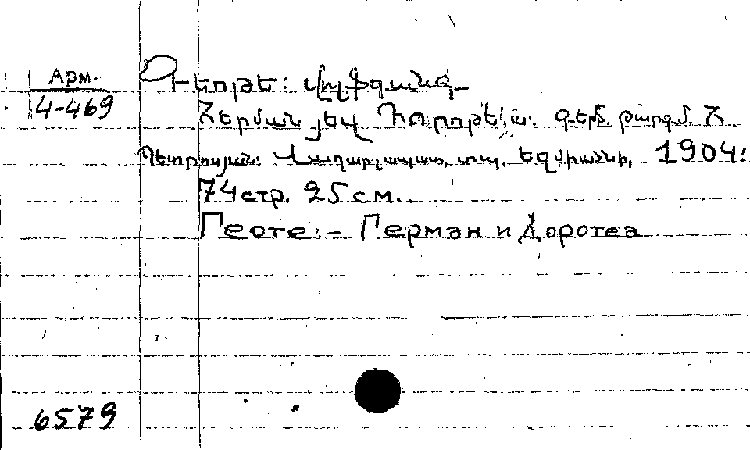 Арм.
4-469
Գեոթե: Վոլֆգանգ
Հերման յեվ Դորոթեյա. գերմ. թարգմ. Հ
Պետրոսյան. Վաղարշապատ, տպ. 1904:
74 стр. 25 см.
Геоте: - Герман и Доротеа
6579